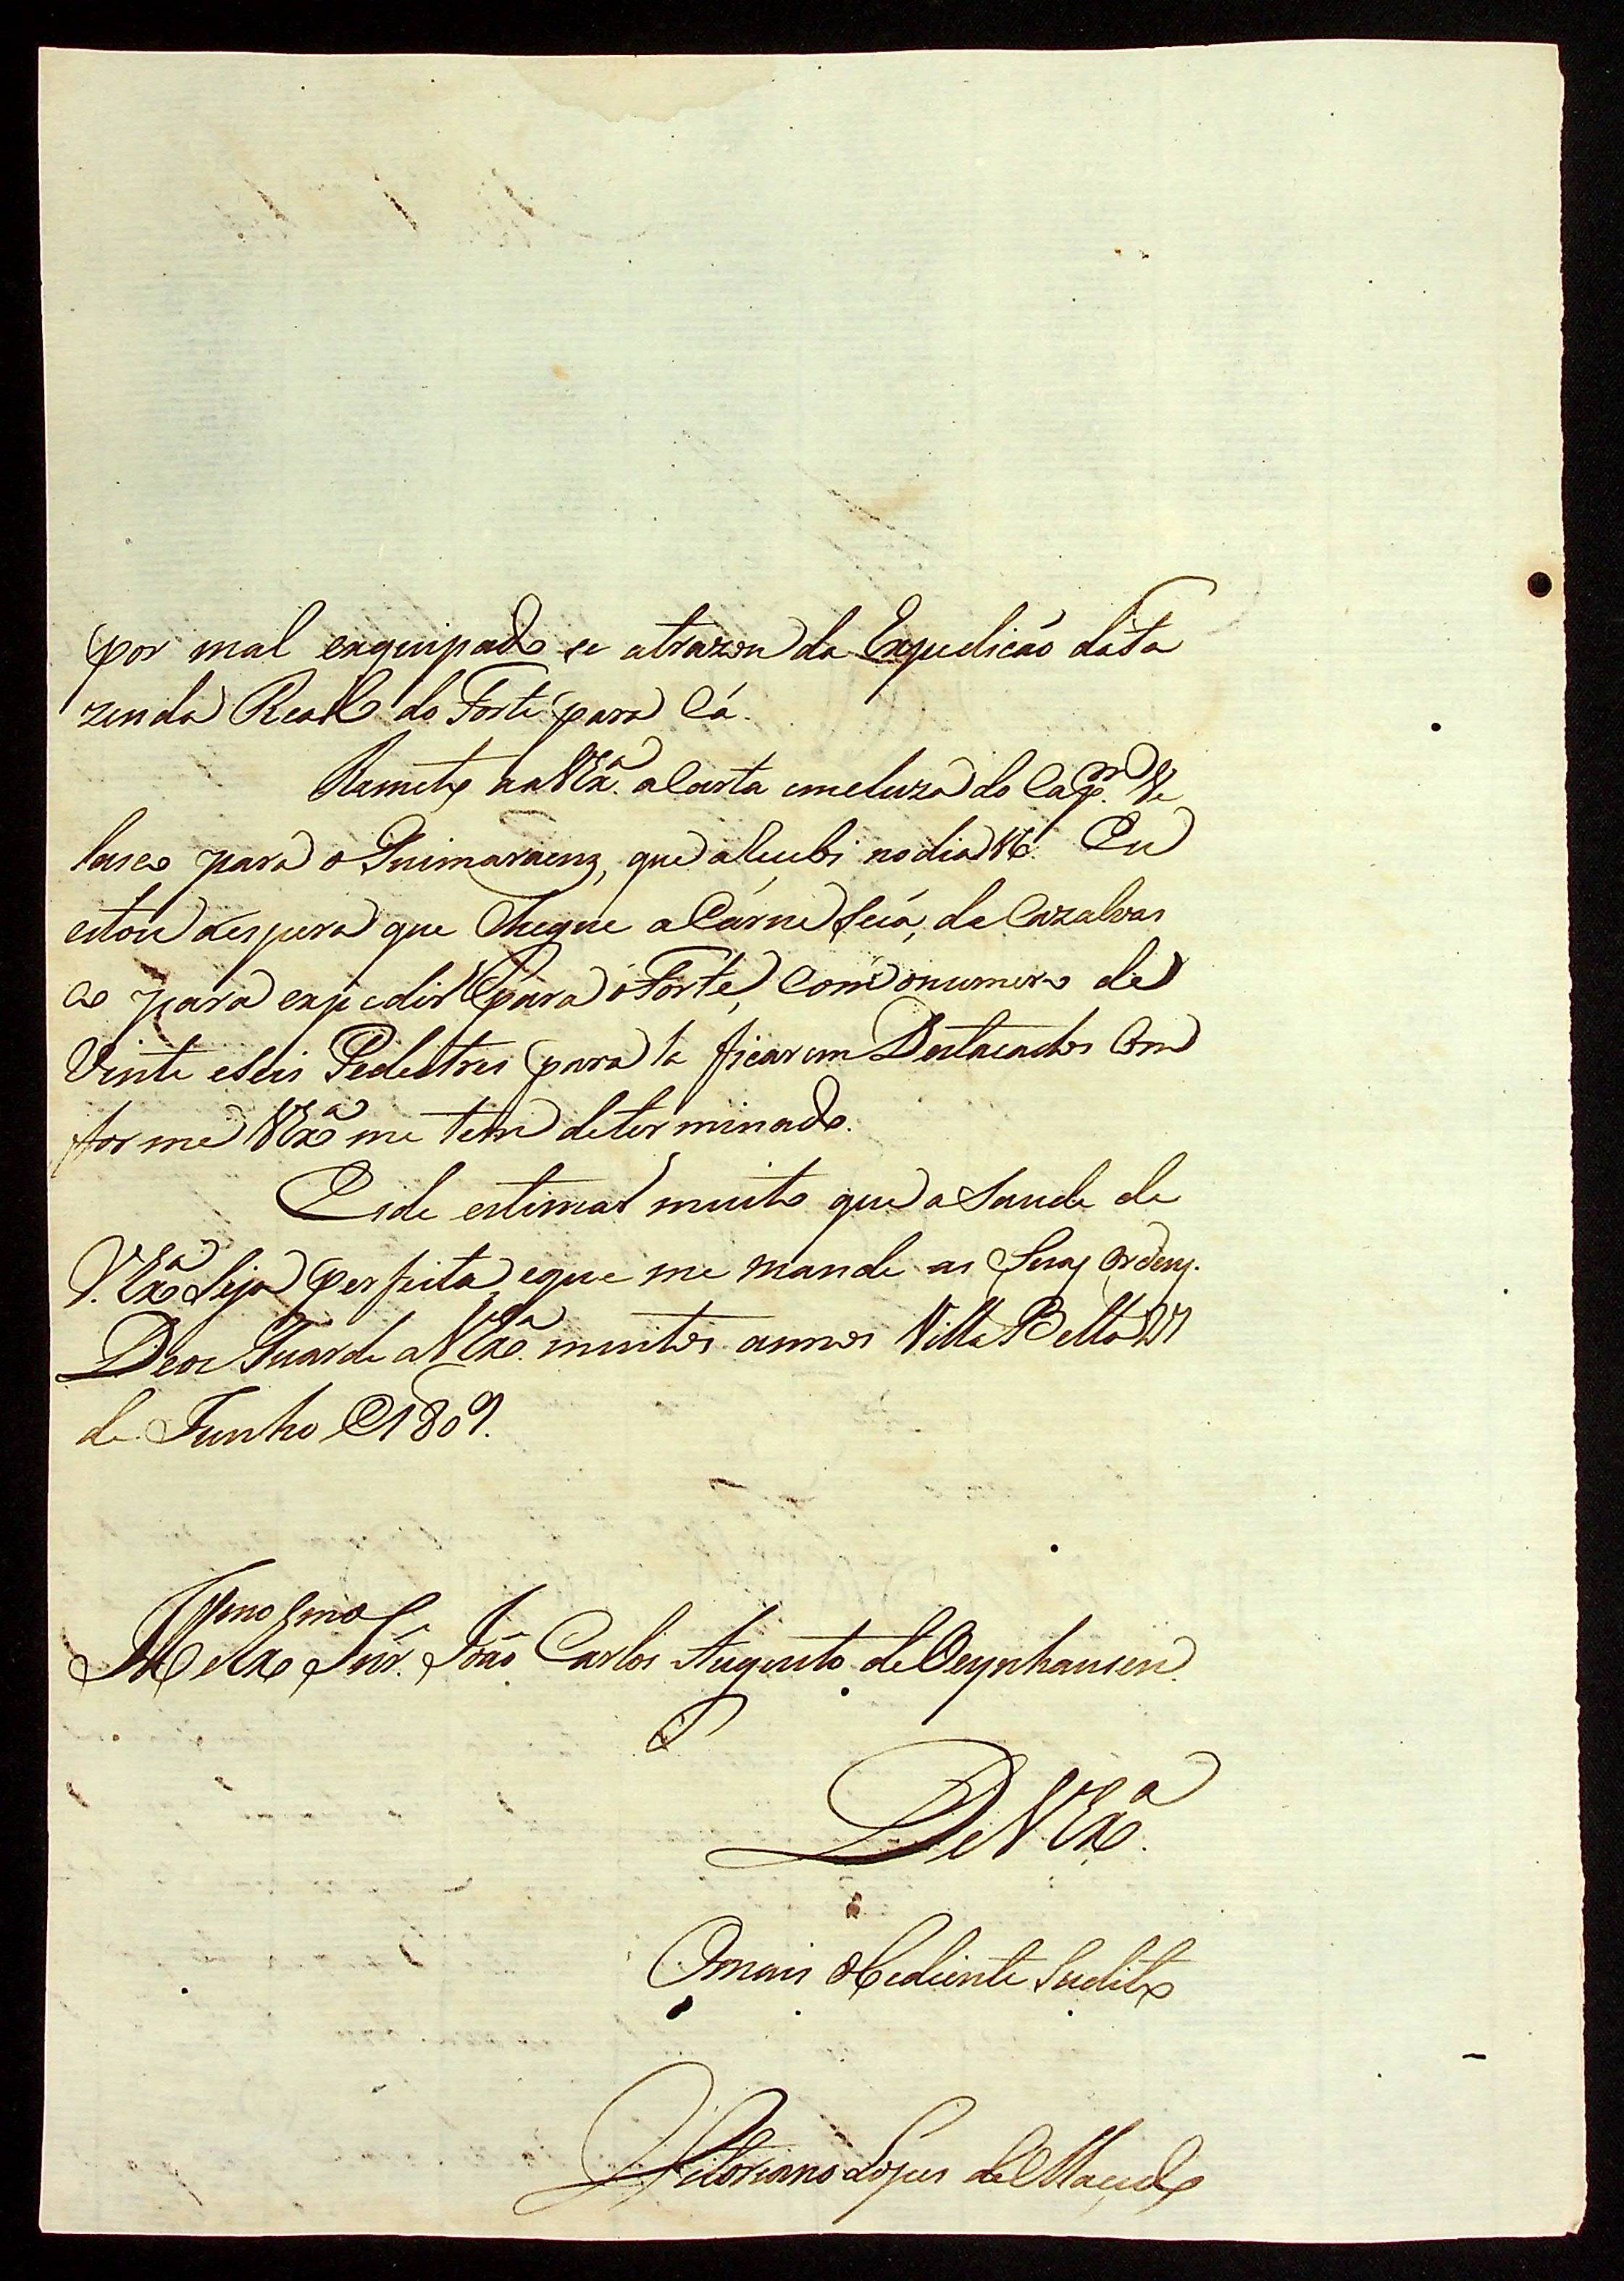 por mal esquipado se atrazou da Expedicaõ dafa
zenda Real do Forte para Cá.
Remeto a VExª. a Carta emcluza do Cap.m Ve
lasco para o Guimaraens, que a Recebi no dia 16. Eu
estou áespera que Chegue a Cárne Seca, de Cazalvas
co para expedir para o Forte, Com onumero de
Vinte eSeis Pedestres para la ficarem Destacados Com
forme VExª me tem determinado.
Eide estimar muito que a Saude de
V.Exª Seja perfeita, eque me mande as Suas Ordens.
Deos Guarde a VExª. muitos annos Villa Bella 27
de Junho de 1809.
Illmo e Exmo Snr. João Carlos Augusto de Oeynhausen
De VExª.
Omais obediente Sudito
Victoriano Lopes de Macedo